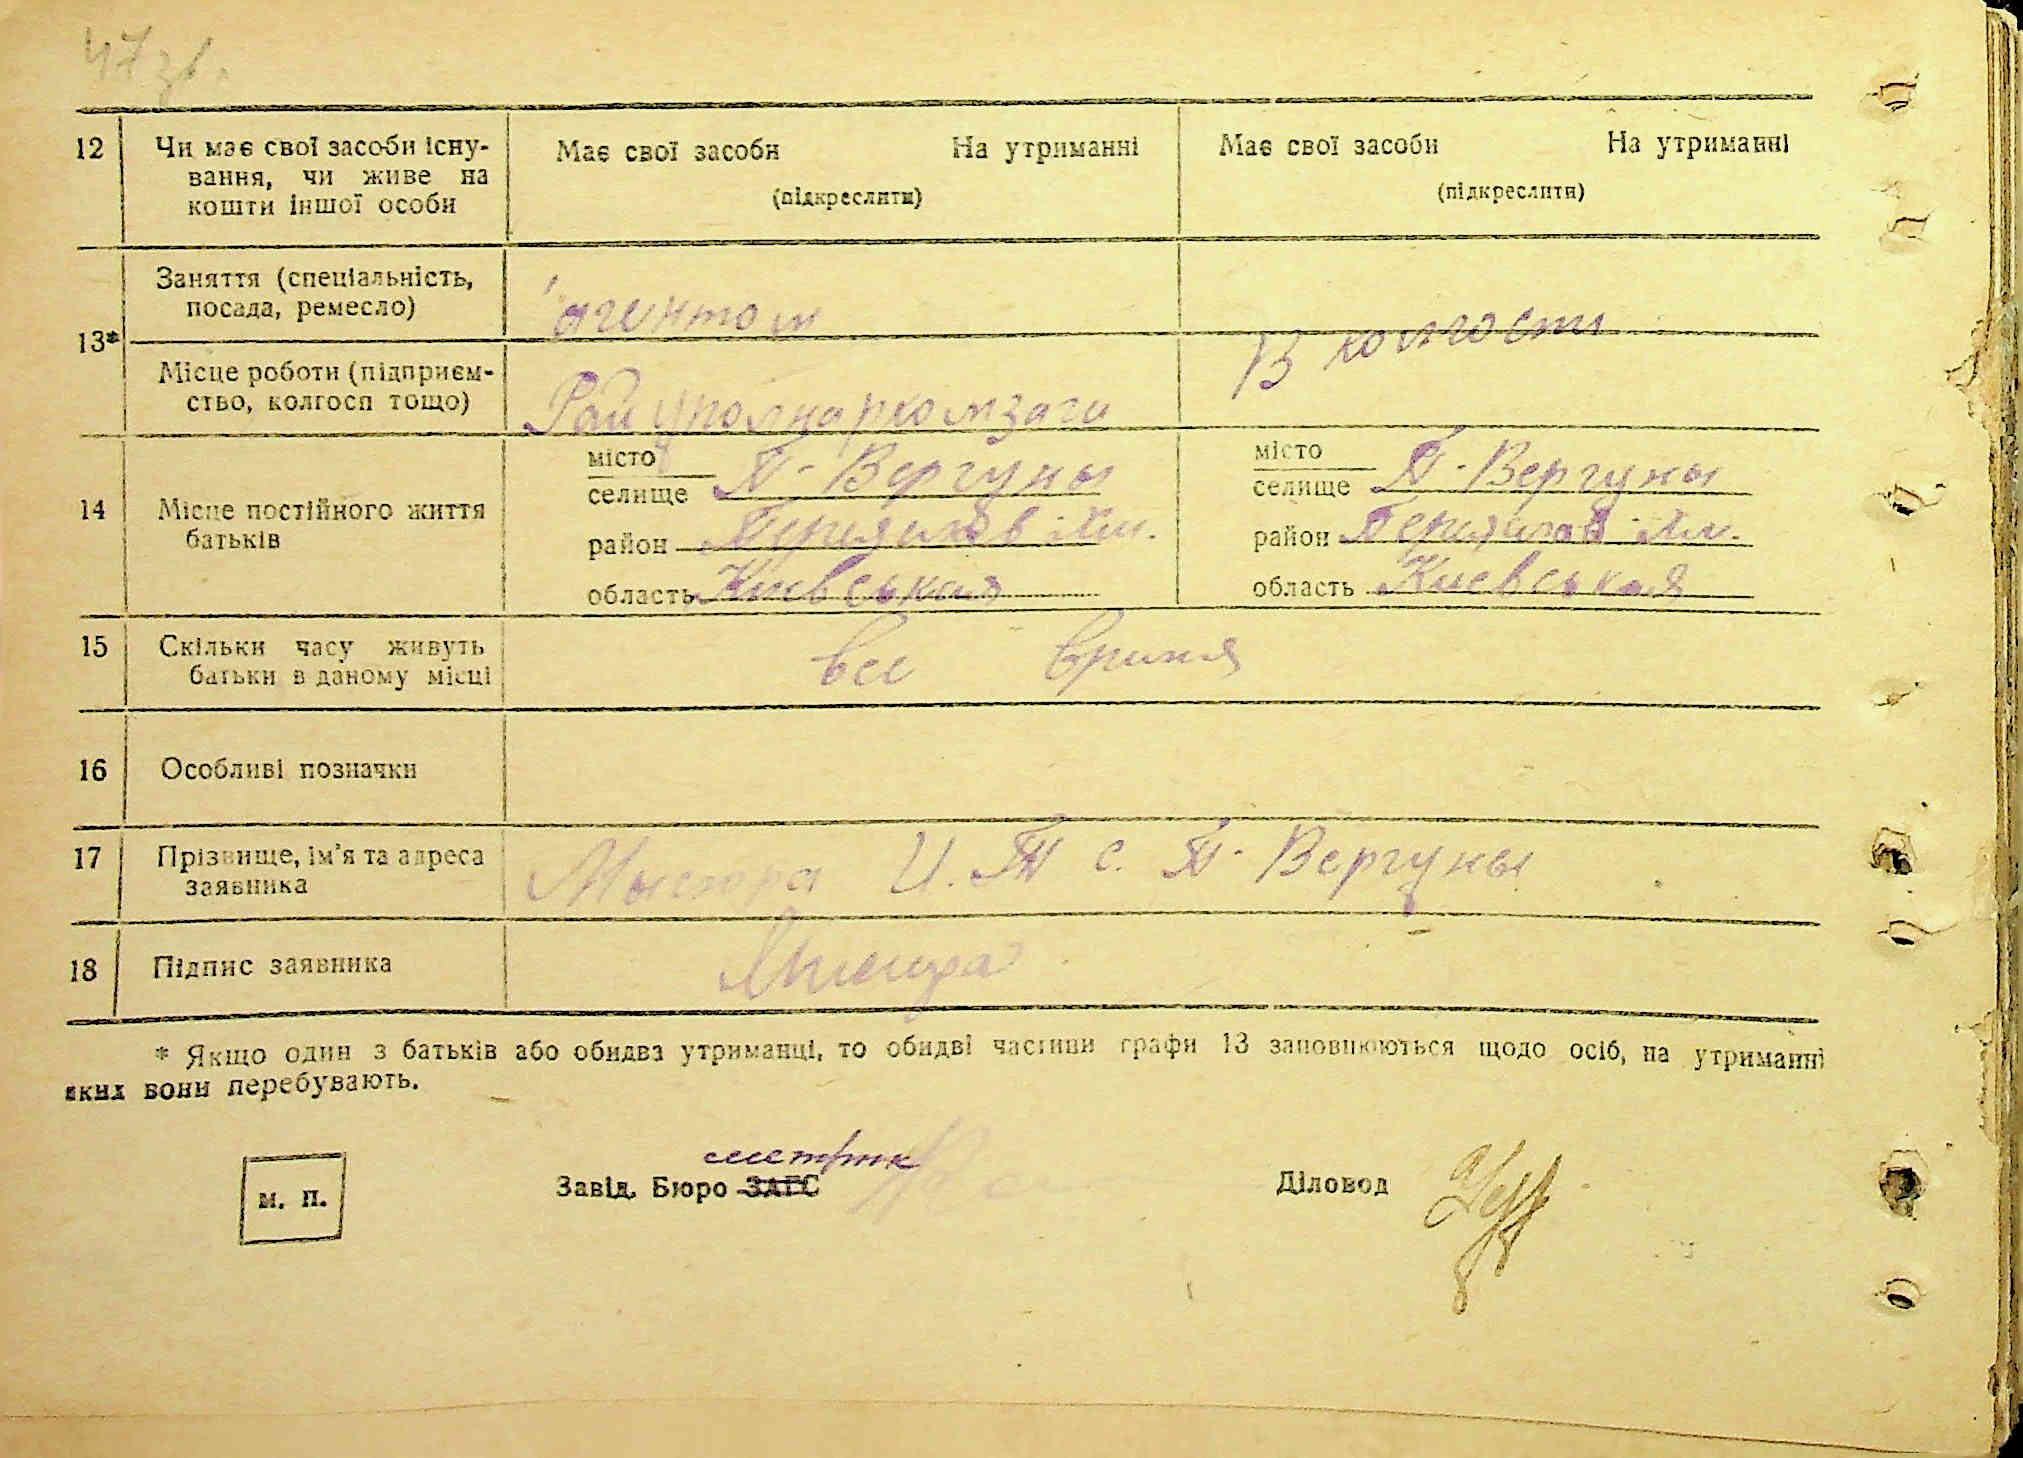 47 зв.
12 Чи має свої засоби існу- Має свої засоби На утриманні Має свої засоби На утриманні
вання, чи живе на (підкреслити) (підкреслити)
кошти іншої особи
13* Заняття (спеціальність, агентом В колгости
посада, ремесло)
Місце роботи (підприєм- Рай уполнаркомзаги
ство, колгосп тощо)
14 Місце постійного життя батьків
місто
селище П-Вергуны
район
область Киевськая
місто
селище П-Вергуны
район
область Киевськая
15 Скільки часу живуть все время
батьки в даному місці
16 Особливі позначки
17 Прізвище, ім'я та адреса И. П с. П-Вергуны
заявника
18 Підпис заявника
* Якщо один з батьків або обидва утриманці, то обидві частини графи 13 заповнюються щодо осіб, на утриманні
яких вони перебувають.
метрик
м. п. Завід. Бюро ЗАГС Діловод